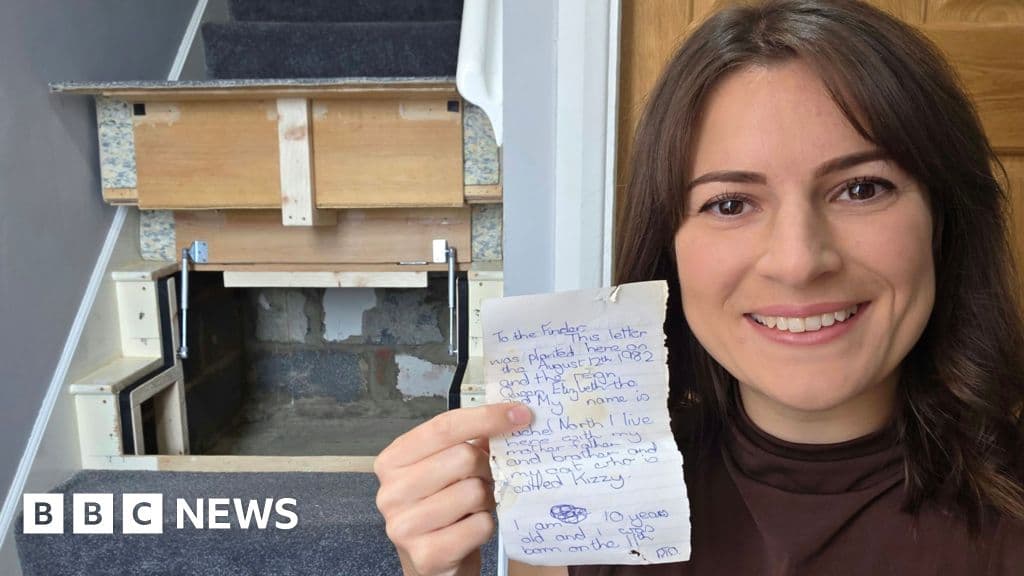 To the Finder:
This letter
was planted here on
the August 12th 1982
and the
My name is
North I live
here with my
mother father
and brother and
my cat who is
called Kizzy.
I am 10 years
old and I was
born on the 11th
PTO.
BBC NEWS